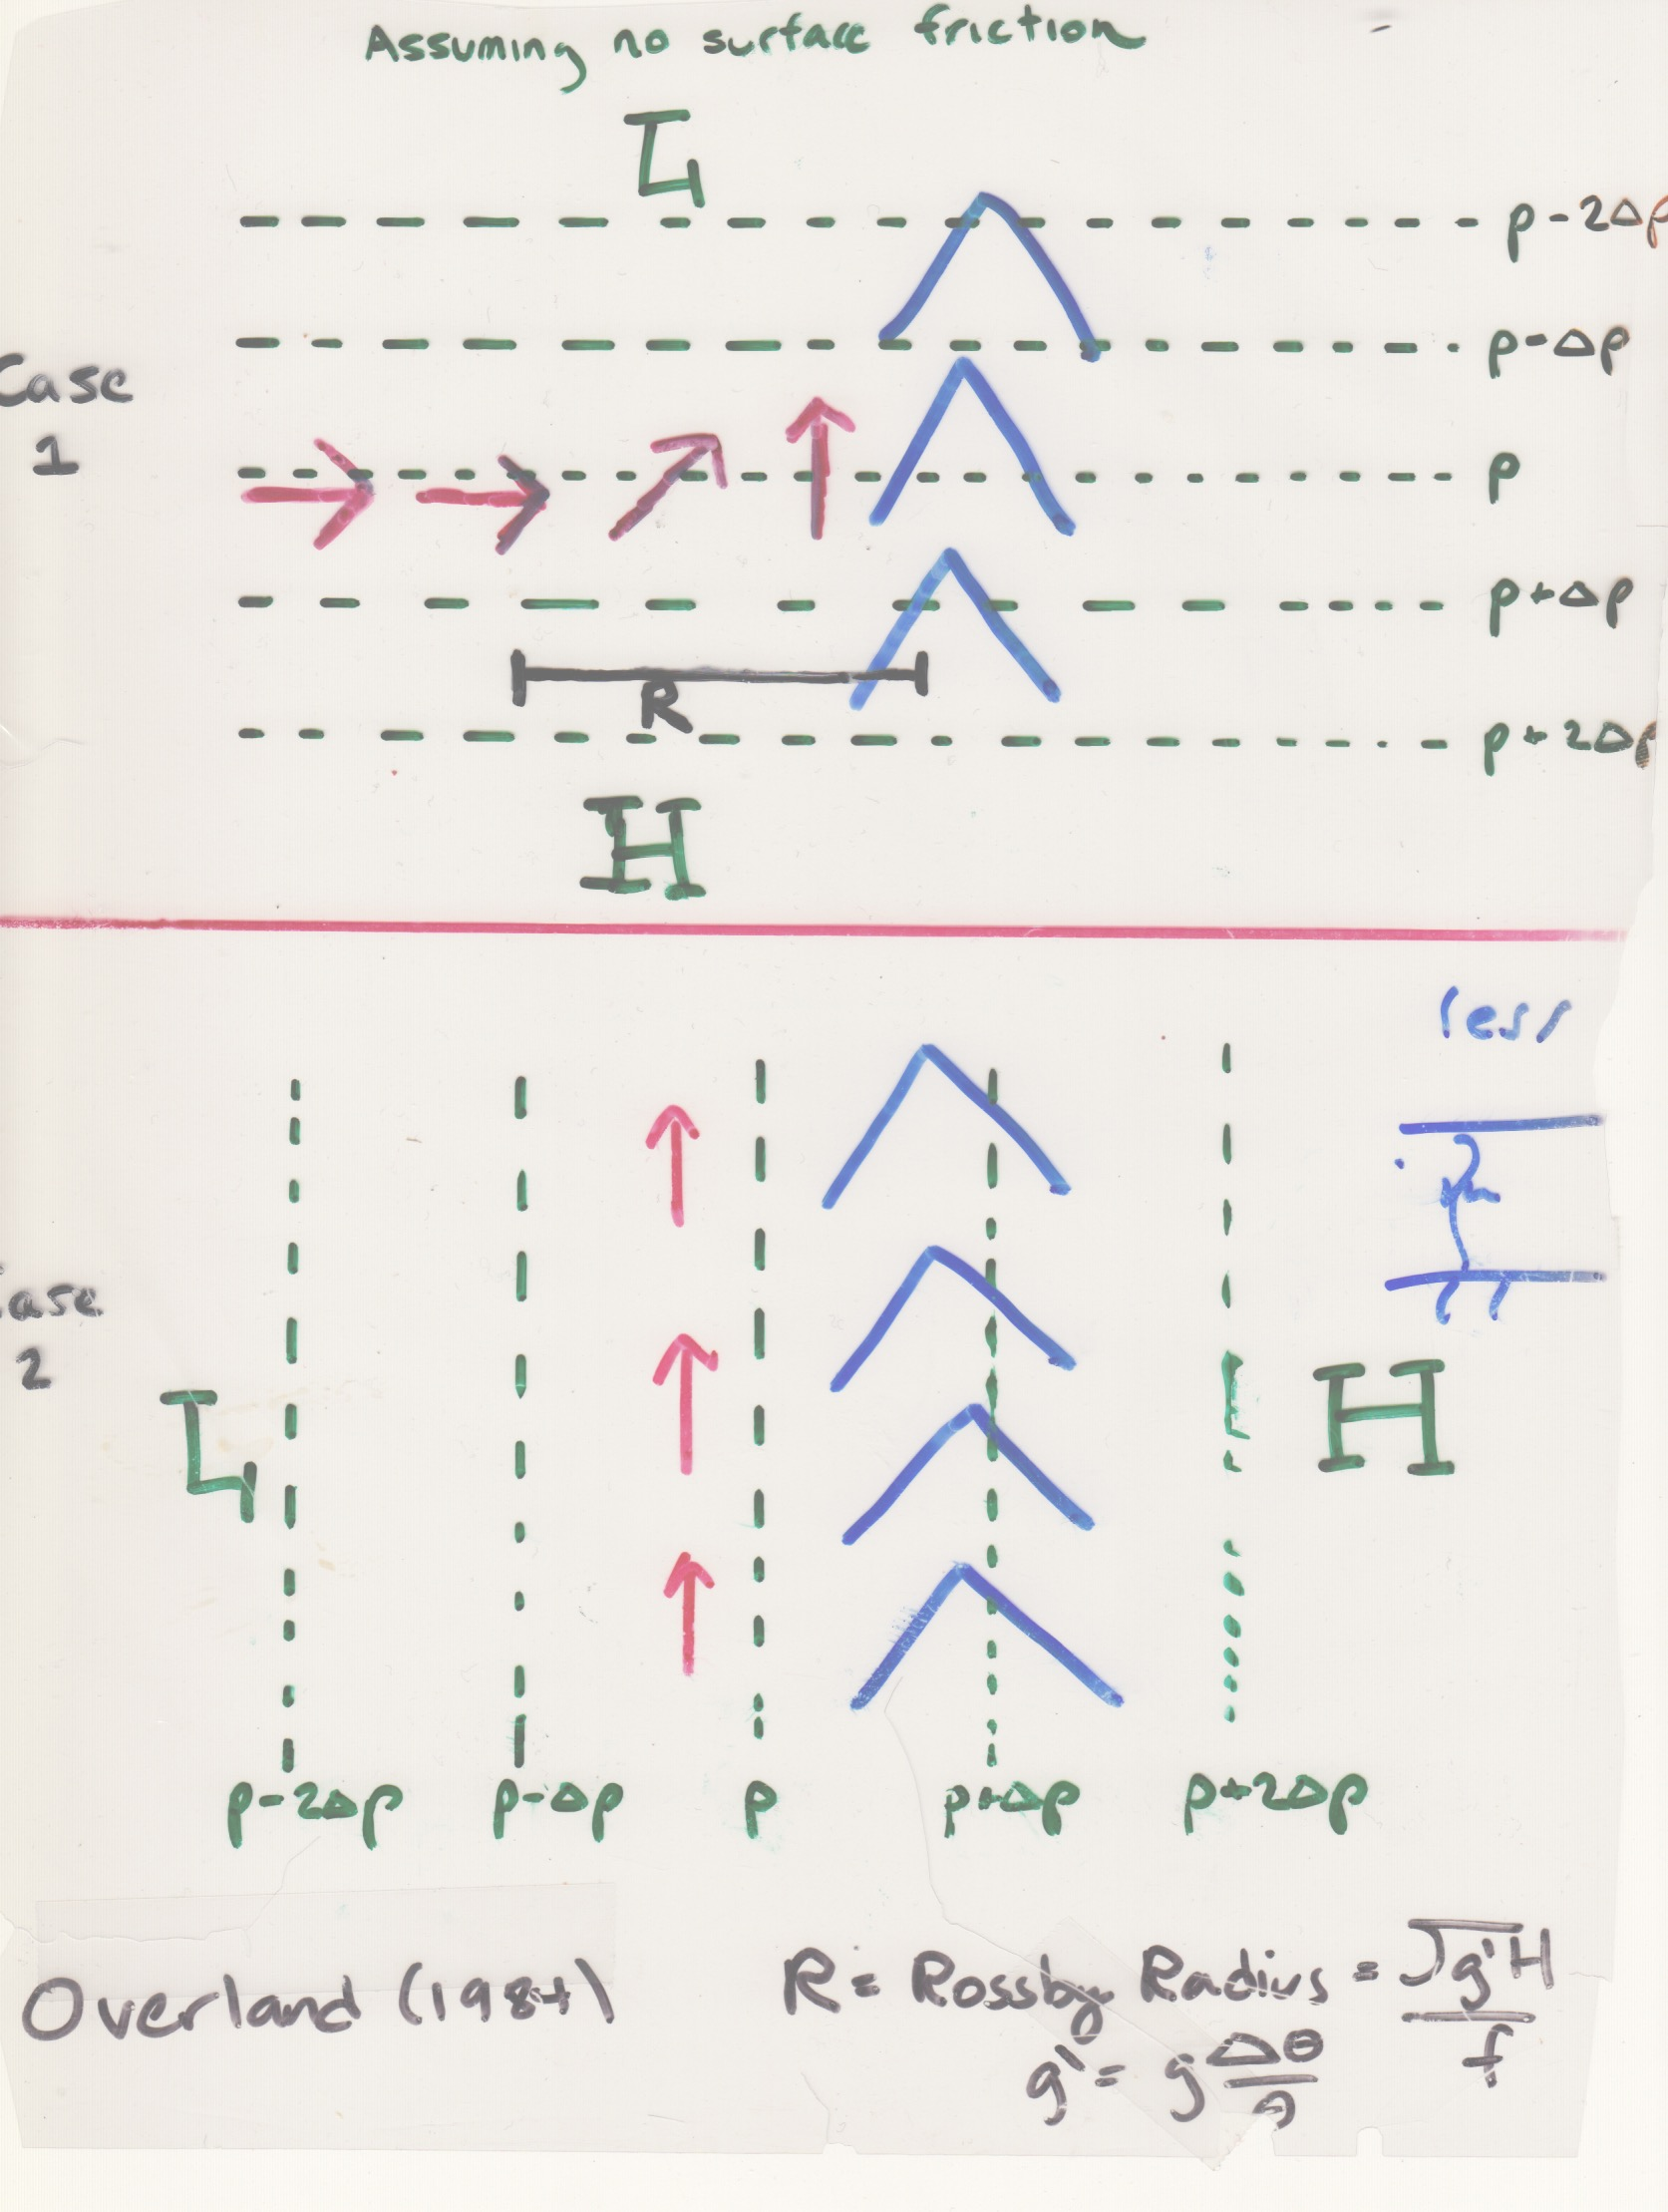 Assuming no surface friction
L
p-2Δp
p-Δp
Case
1
p
p+Δp
R
p+2Δp
H
less
Case
2
L
H
p-2Δp p-Δp p p+Δp p+2Δp
Overland (1984)
R = Rossby Radius = √g'H / f
g' = g Δθ / θ